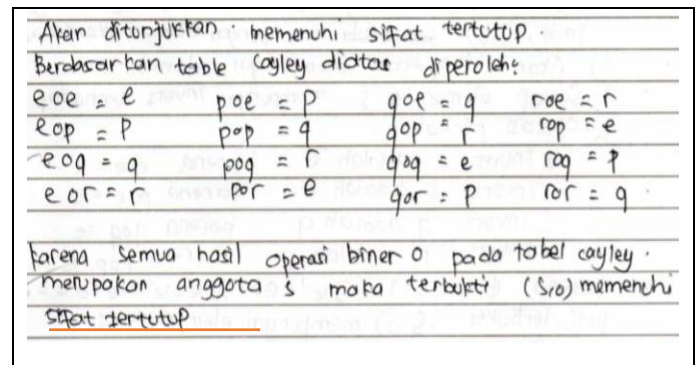 Akan ditunjukkan memenuhi sifat tertutup
Berdasarkan table Cayley diatas diperoleh:
eoe = e poe = p qoe = q roe = r
eop = p pop = q qop = r rop = e
eoq = q poq = r qoq = e roq = p
eor = r por = e qor = p ror = q
karena semua hasil operasi biner o pada tabel cayley.
merupakan anggota s maka terbukti (s,o) memenuhi
sifat tertutup